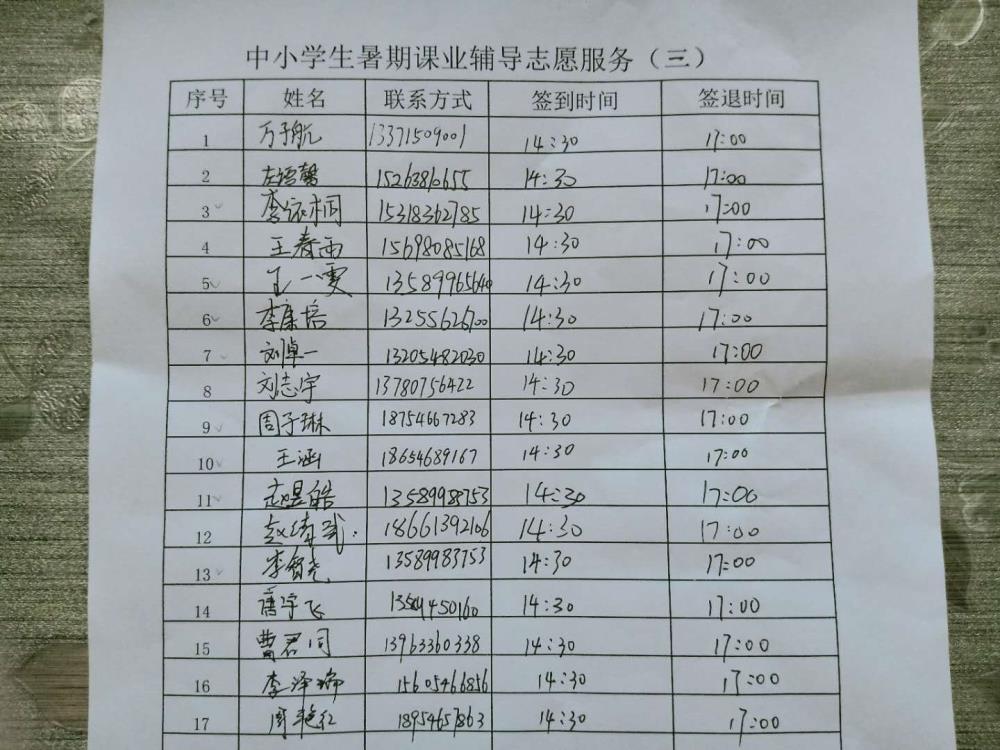 中小学生暑期课业辅导志愿服务（三）
序号 姓名 联系方式 签到时间 签退时间
1 万子航 13371509001 14:30 17:00
2 15263810655 14:30 17:00
3 李依桐 15318362785 14:30 17:00
4 王春雨 15698085168 14:30 17:00
5 王一雯 13589965640 14:30 17:00
6 李康培 13255626700 14:30 17:00
7 刘卓一 13205482030 14:30 17:00
8 刘志宇 13780756422 14:30 17:00
9 周子琳 18754667283 14:30 17:00
10 王涵 18654689167 14:30 17:00
11 赵昱皓 13589988753 14:30 17:00
12 18661392106 14:30 17:00
13 13589983753 14:30 17:00
14 唐宇飞 14:30 17:00
15 曹君同 13963360338 14:30 17:00
16 李泽瑜 15605466856 14:30 17:00
17 周艳红 18954657863 14:30 17:00